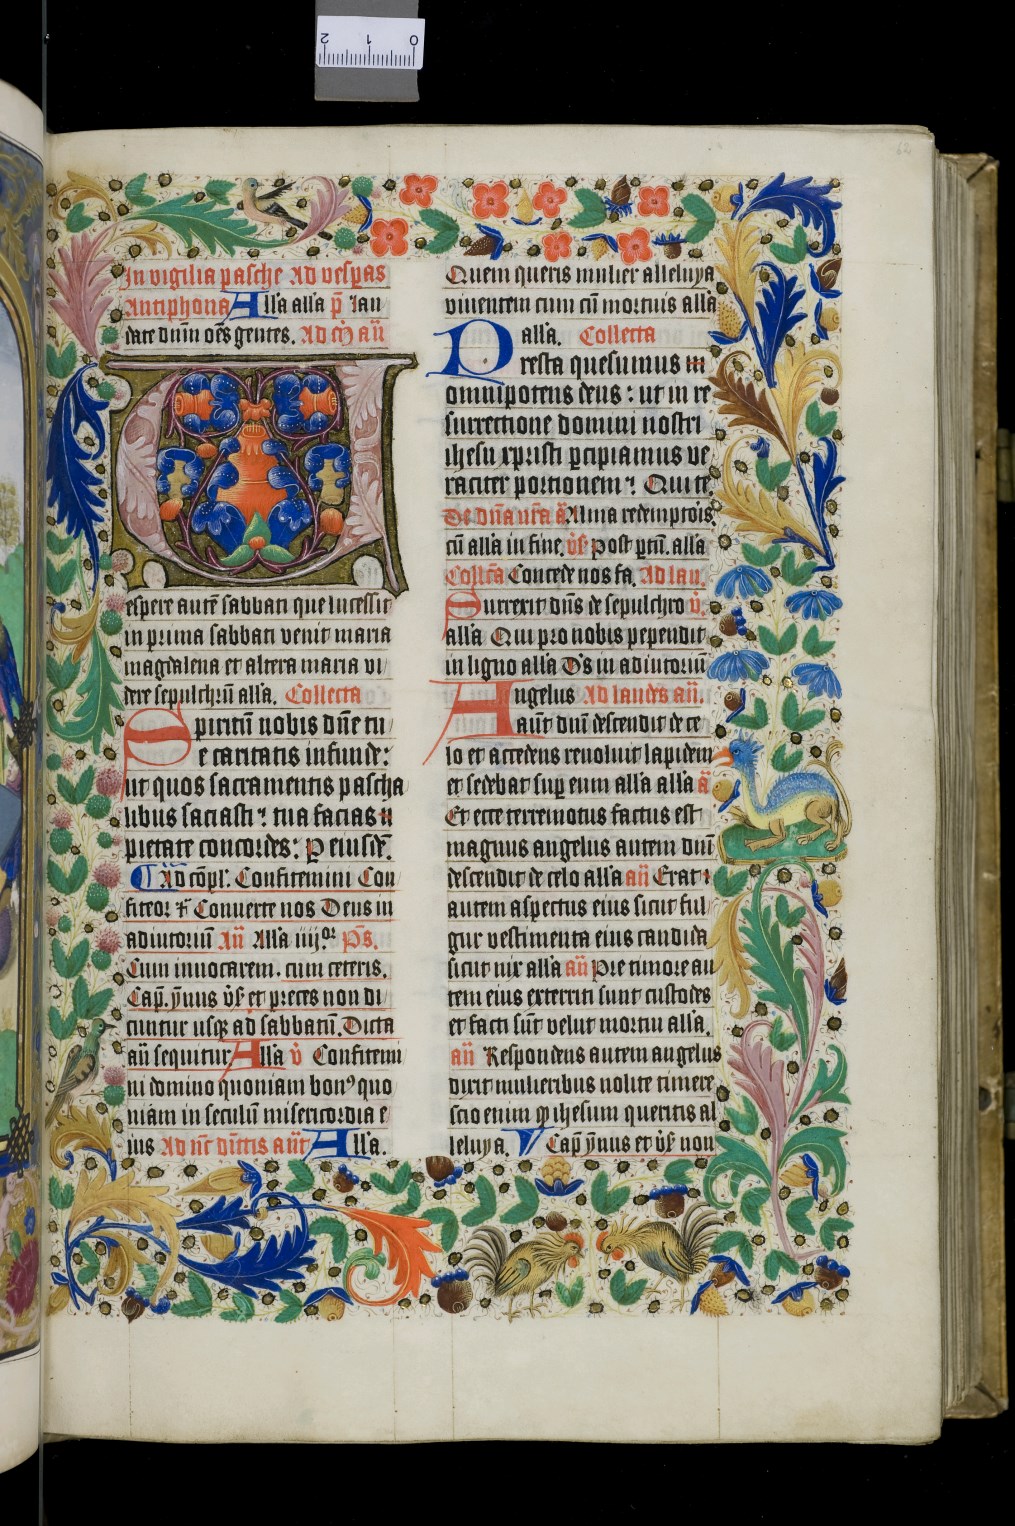 62
2 1 0
In vigilia pasche Ad vespas
Antiphona All'a all'a p̄ Lau
date dnm̄ oēs gentes. Ad m̄ añ
Vespere autē sabbati que lucessit
in prima sabbati venit maria
magdalena et altera maria vi
dere sepulchrū all'a. Collecta
Spiritū nobis dñe tu
e caritatis infunde:
ut quos sacramentis pascha
libus saciasti: tua facias
pietate concordes: P eiusdē.
Ad cōpl'. Confitemini Con
fiteor Conuerte nos Deus in
adiutoriū Añ All'a iiijor Ps.
Cum inuocarem. cum ceteris.
Cap. ymus v̄s et preces non di
cuntur usq3 ad sabbatū. Dicta
añ sequitur All'a v̄ Confitemi
ni domino quoniam bon9 quo
niam in seculū misericordia e
ius Ad nūc dīttis añt All'a.
Quem queris mulier alleluya
viuentem cum cū mortuis all'a
all'a. Collecta
Presta quesumus
omnipotens deus: ut in re
surrectione domini nostri
ihesu xpristi pcipiamus ve
raciter portionem: Qui te.
De dña nr̄a ā Alma redemptōis
cū all'a in fine. v̄s Post ptū. all'a
Collcā Concede nos fa. Ad lau.
Surrexit dñs de sepulchro v̄.
all'a Qui pro nobis pependit
in ligno all'a D's in adiutoriū
Angelus Ad laudes añ.
aūt dnī descendit de ce
lo et accedens reuoluit lapidem
et sedebat sup eum all'a all'a ā
Et ecce terremotus factus est
magnus angelus autem dnī
descendit de celo all'a añ Erat
autem aspectus eius sicut ful
gur vestimenta eius candida
sicut nix all'a añ Pre timore au
tem eius exterriti sunt custodes
et facti sūt velut mortui all'a.
añ Respondens autem angelus
dixit mulieribus nolite timere
scio enim q ihesum queritis al
leluya. Cap ymus et v̄s non